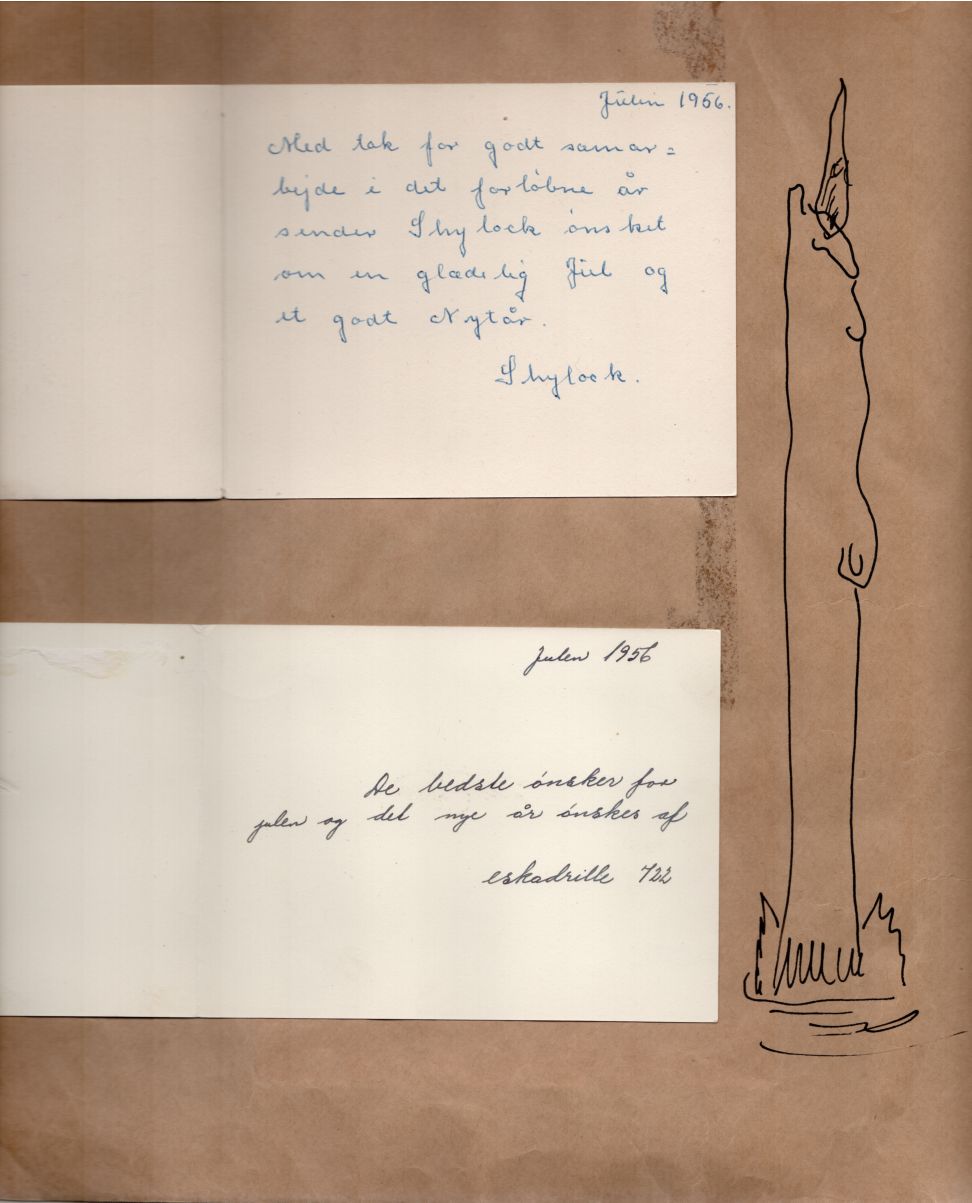 Julen 1956.
Med tak for godt samar=
bejde i det forløbne år
sender Shylock ønsket
om en glædelig Jul og
et godt Nytår.
Shylock.
Julen 1956
De bedste ønsker for
julen og det nye år ønskes af
eskadrille 722